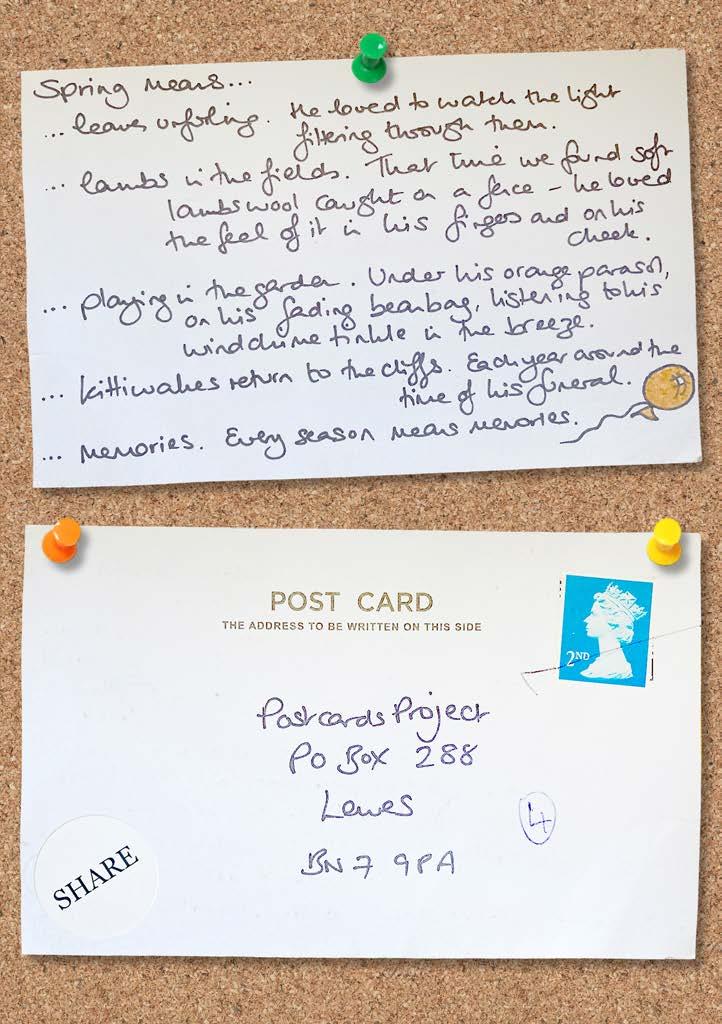 Spring means...
... leaves unfurling. He loved to watch the light
filtering through them.
... lambs in the fields. That time we found soft
lambswool caught on a fence – he loved
the feel of it in his fingers and on his
cheek.
... playing in the garden. Under his orange parasol,
on his fading beanbag, listening to his
windchime tinkle in the breeze.
... kittiwakes return to the cliffs. Each year around the
time of his funeral.
... memories. Every season means memories.
POST CARD
THE ADDRESS TO BE WRITTEN ON THIS SIDE
2ND
Postcards Project
PO Box 288
Lewes
4
BN7 9PA
SHARE